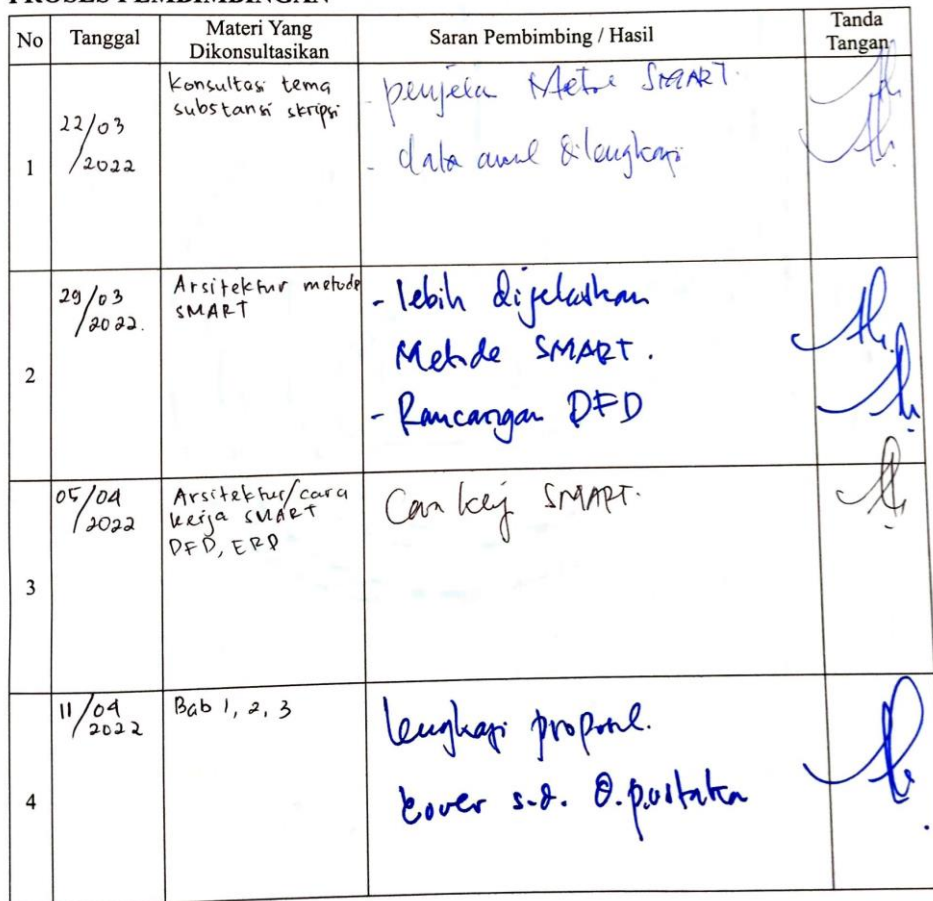 PROSES PEMBIMBINGAN
No Tanggal Materi Yang Dikonsultasikan Saran Pembimbing / Hasil Tanda Tangan
1 22/03/2022 Konsultasi tema
substansi skripsi
- penjela Metode SMART.
- data awal dilengkapi
2 29/03/2022. Arsitektur metode
SMART
- lebih dijelaskan
Metode SMART.
- Rancangan DFD
3 05/04/2022 Arsitektur/cara
kerja SMART
DFD, ERD
Cara kerj SMART.
4 11/04/2022 Bab 1, 2, 3
lengkapi proposal.
cover s.d. D.pustaka